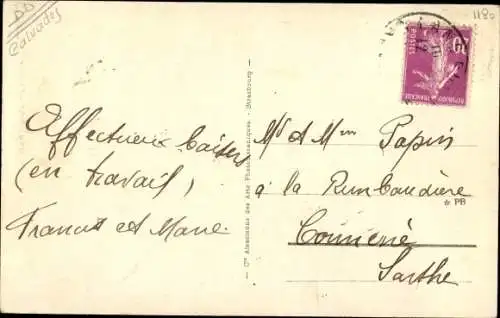 DD
Calvados
1180
POSTES
20
REPUBLIQUE FRANÇAISE
Affectueux baisers
(en travail)
Francis et Marie
Cie Alsacienne des Arts Photomécaniques - Strasbourg
Mr et Mme Papin
à la Rimbaudière
* PB
Connerré
Sarthe